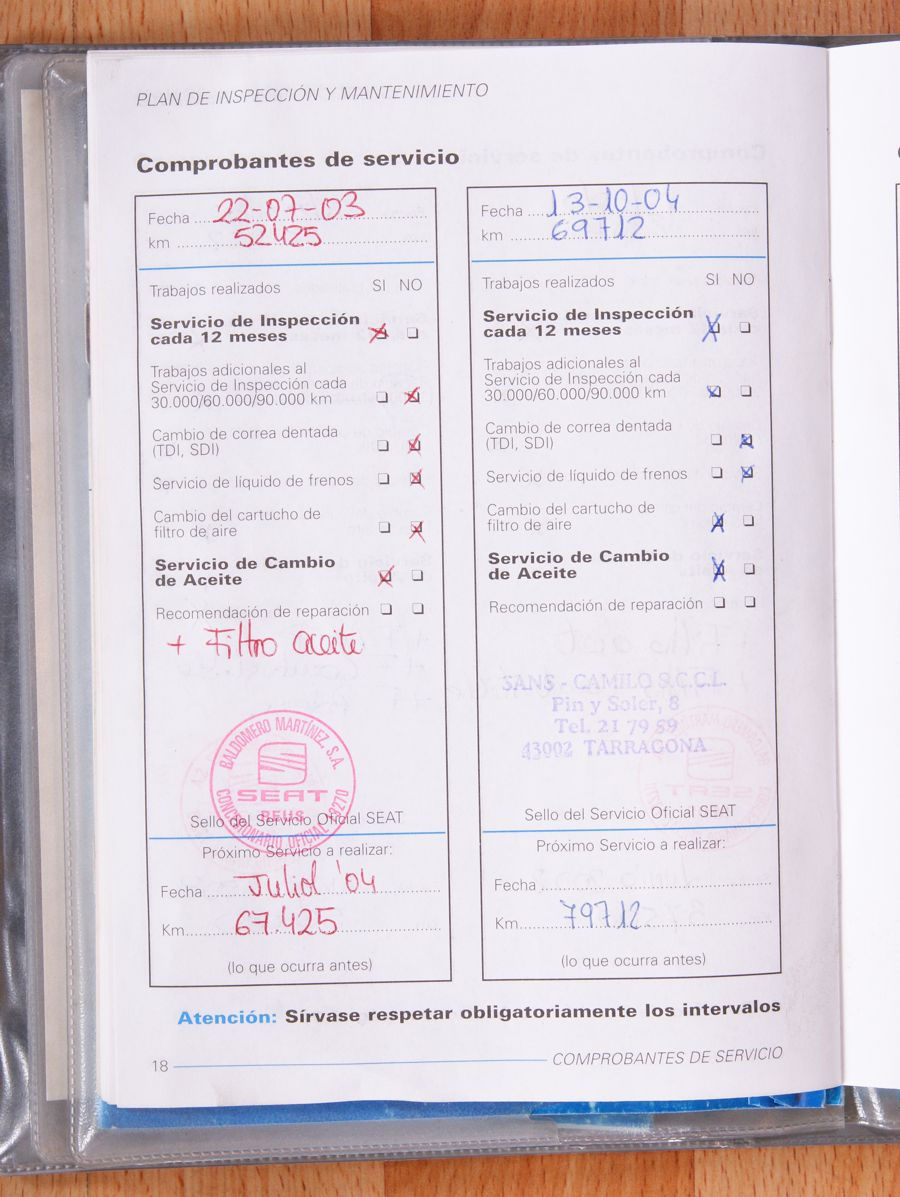 PLAN DE INSPECCIÓN Y MANTENIMIENTO
Comprobantes de servicio
Fecha 22-07-03
km 52425
Trabajos realizados SI NO
Servicio de Inspección
cada 12 meses
Trabajos adicionales al
Servicio de Inspección cada
30.000/60.000/90.000 km
Cambio de correa dentada
(TDI, SDI)
Servicio de líquido de frenos
Cambio del cartucho de
filtro de aire
Servicio de Cambio
de Aceite
Recomendación de reparación
+ Filtro aceite
BALDOMERO MARTÍNEZ, S.A.
SEAT
REUS
CONCESIONARIO OFICIAL
Sello del Servicio Oficial SEAT
Próximo Servicio a realizar:
Fecha Juliol '04
Km 67.425
(lo que ocurra antes)
Fecha 13-10-04
km 69712
Trabajos realizados SI NO
Servicio de Inspección
cada 12 meses
Trabajos adicionales al
Servicio de Inspección cada
30.000/60.000/90.000 km
Cambio de correa dentada
(TDI, SDI)
Servicio de líquido de frenos
Cambio del cartucho de
filtro de aire
Servicio de Cambio
de Aceite
Recomendación de reparación
SANS - CAMILO S.C.C.L.
Pin y Soler, 8
Tel. 21 79 59
43002 TARRAGONA
Sello del Servicio Oficial SEAT
Próximo Servicio a realizar:
Fecha
Km 79712
(lo que ocurra antes)
Atención: Sírvase respetar obligatoriamente los intervalos
18 COMPROBANTES DE SERVICIO